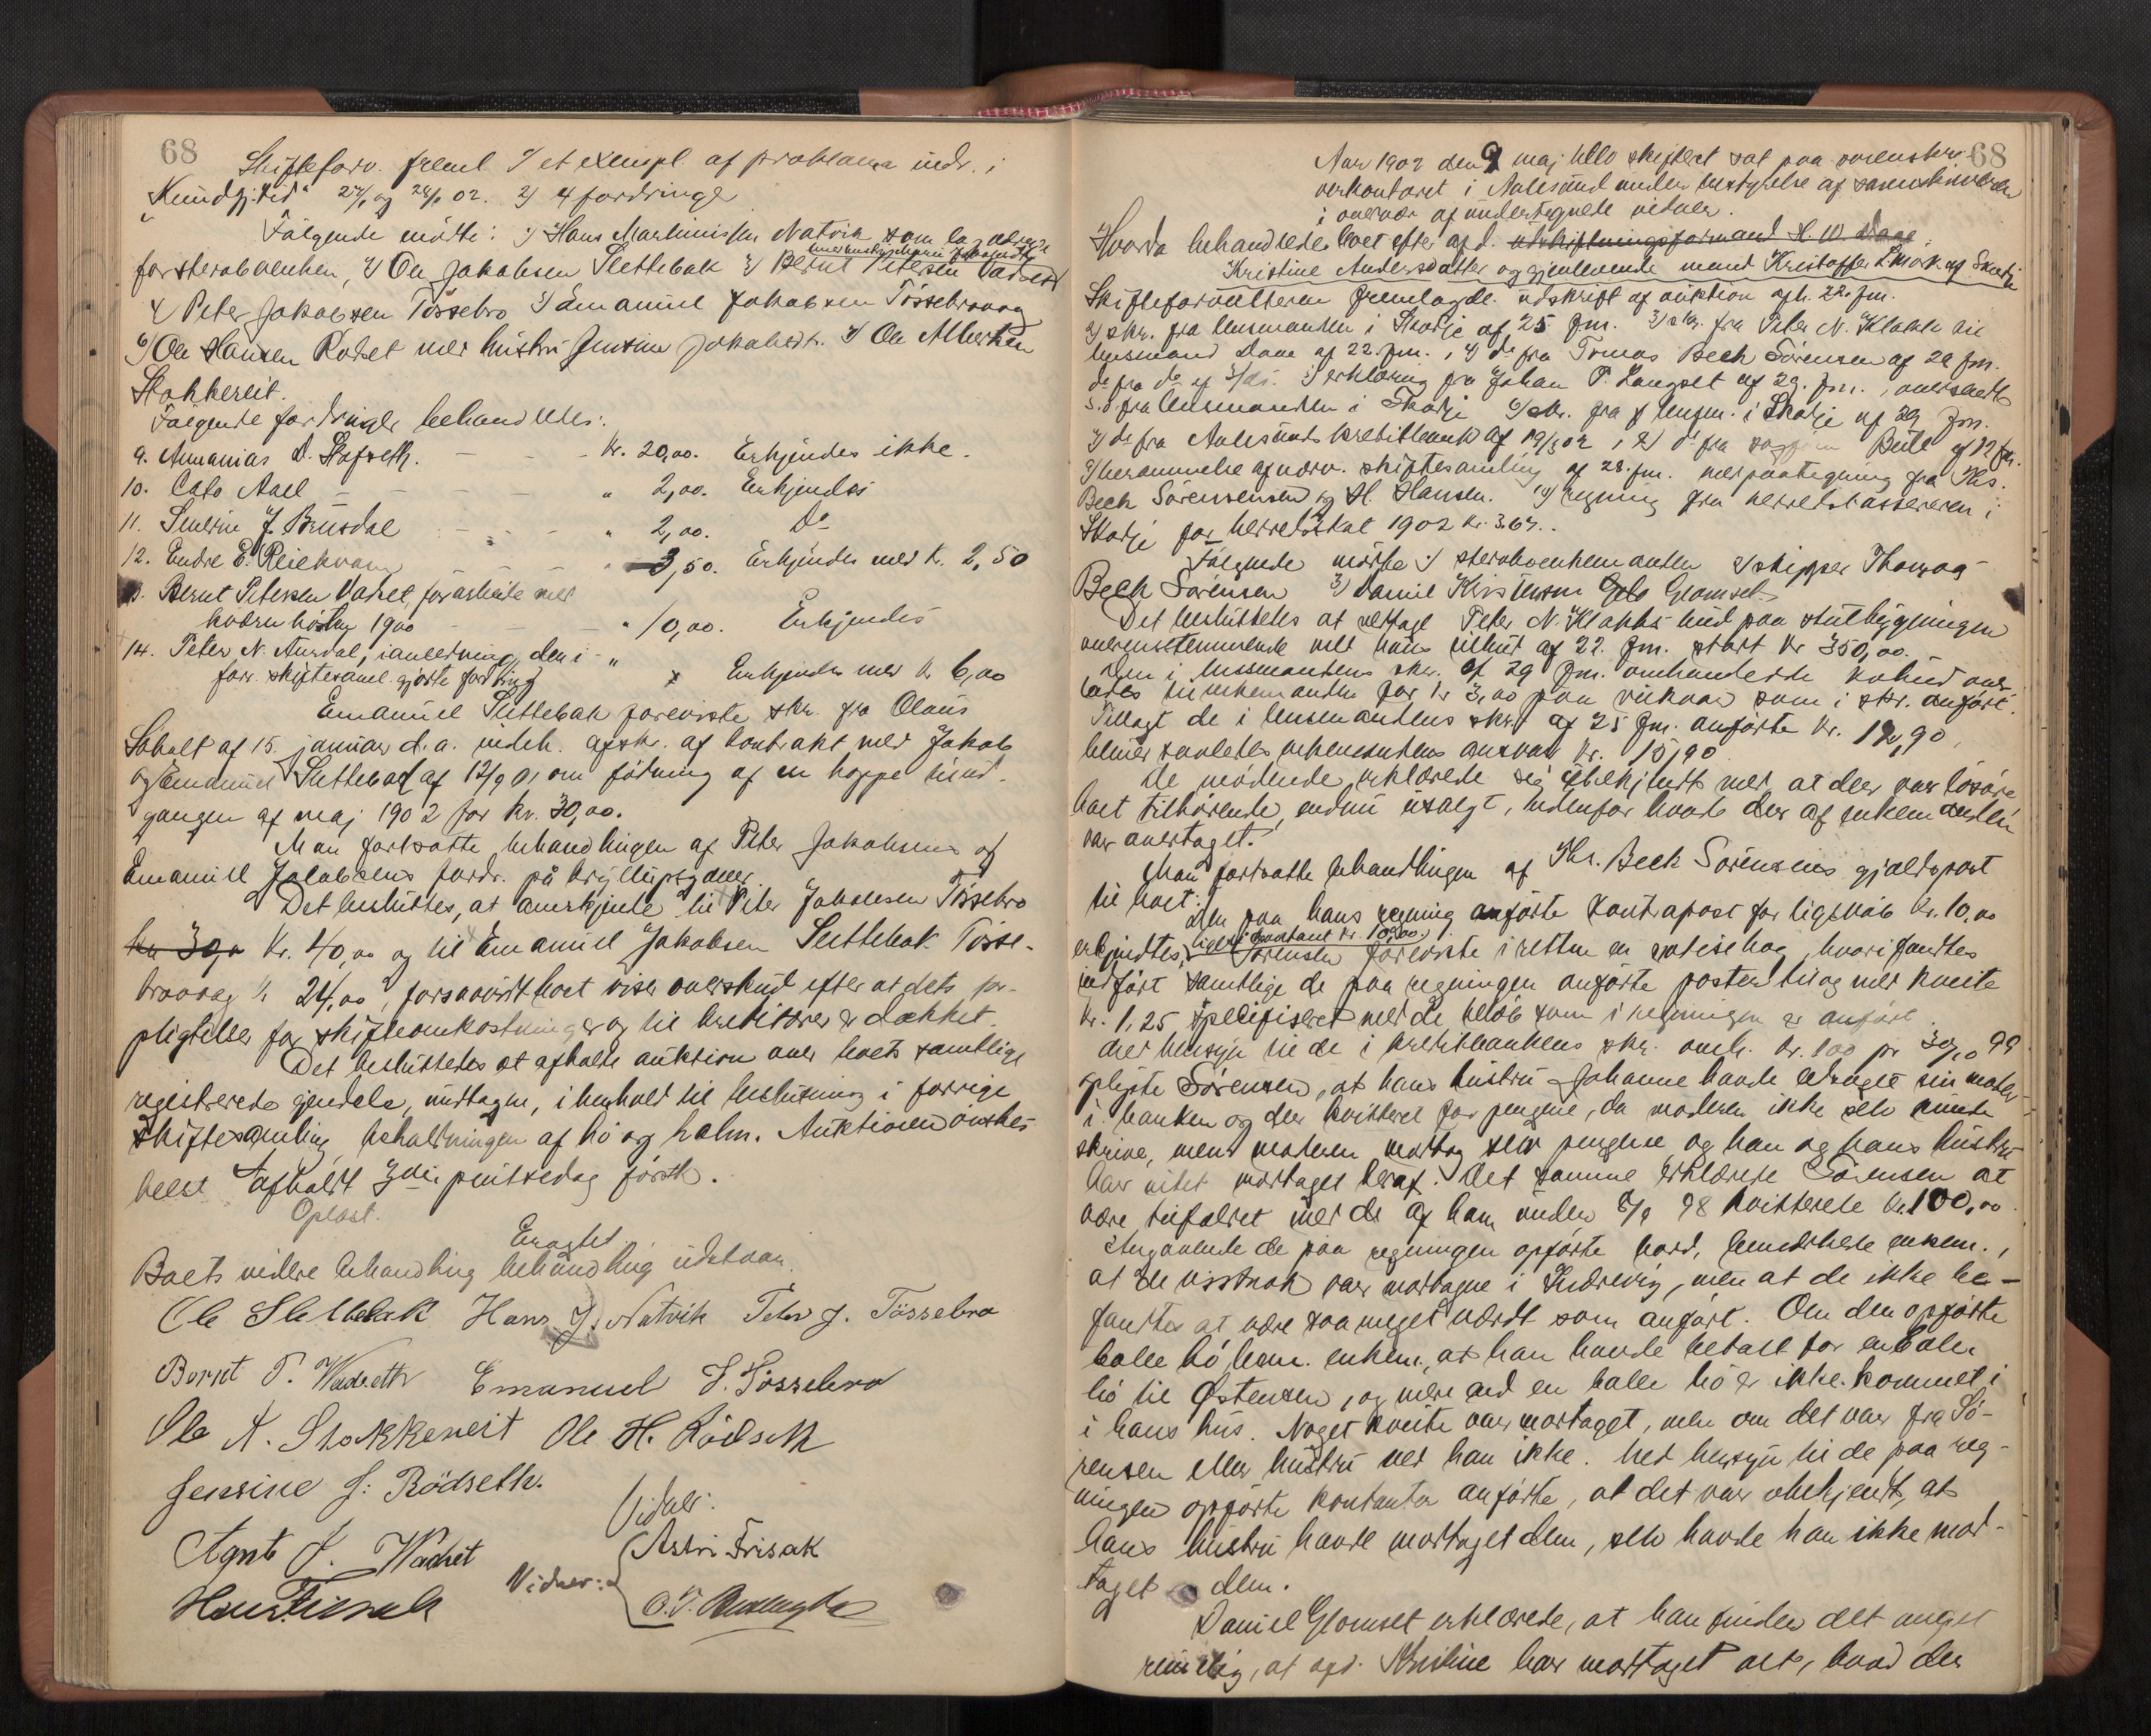 68
Skifteforv. freml. 1) et exempl. af proklama indr. i
"Kundgj.tid" 27/1 og 28/1 02. 2) 4 fordringer
Følgende mötte: 1) Hans Martinussen Natvik som lagværge
for sterboenken, 2) Ole Jakobsen Slettebak 3) Bernt Petersen Vadset
4) Peter Jakobsen Tössebro 5) Emanuel Jakobsen Tössebrovaag
6) Ole Hansen Rödset med hustru Jensine Jakobsdtr. 7) Ole Albertsen
Stokkereit.
Følgende fordringer behandledes:
9. Annanias D. Hofseth. - - - kr. 20,00. Erkjendes ikke.
10. Cato Aall - - - - " 2,00. Erkjendes
11. Severin J. Brusdal - - - " 2,00. Do
12. Endre E. Reiekvam " 3,50. Erkjendes med kr. 2,50
13. Bernt Petersen Vadset, for arbeide med
kværn hösten 1900 - - - " 10,00. Erkjendes
14. Peter N. Aursdal, i anledning den i - "
forr. skiftesaml. gjorte fordring x Erkjendes med kr 6,00
Emanuel Slettebak foreviste skr. fra Olaus
Soholt af 15. januar d. a. indeh. afskr. af kontrakt med Jakob
og Emanuel Slettebak af 12/9 01 om födning af en hoppe til ud-
gangen af maj 1902 for kr. 30,00.
Man fortsatte behandlingen af Peter Jakobsens og
Emanuel Jakobsens fordr. på bryllupsgaver.
Det besluttes, at anerkjende til Peter Jakobsen Tössebro
kr 30,00 kr. 40,00 og til Emanuel Jakobsen Slettebak Tösse-
brovaag kr 24,00, forsaavidt boet viser overskud efter at dets for-
pligtelser for skifteomkostninger og til kreditorer er dækket.
Det besluttedes at afholde auktion over boets samtlige
registrerede eiendele, undtagen, i henhold til beslutning i forrige
skiftesamling, beholdningen af hö og halm. Auktionen önskes
helst afholdt 3die pintsedag förstk.
Oplæst.
Eragtet
Boets videre behandling behandling udstaar.
Ole Slettebak Hans J. Natvik Peter J. Tössebro
Bernt P. Wadseth Emanuel J. Tössebro
Ole A. Stokkereit Ole H. Rödseth
Jensine J. Rödseth.
Agnt J. Wadset Vidner:
Hans Frisak Vidner: Astri Frisak

68
Aar 1902 den 9 maj blev skifteret sat paa sorenskri-
verkontoret i Aalesund under bestyrelse af sorenskriveren
i overvær af undertegnede vidner.
Hvorda behandledes boet efter afd. udskiftningsformand H. W. Daae.
Kristine Andersdatter og gjenlevende mand Kristoffer af Skodje
Skifteforvalteren fremlagde udskrift af auktion afh. 22. fm.
2) skr. fra lensmanden i Skodje af 25 fm. 3) skr. fra Peter N. Klokk til
lensmand Daae af 22. fm., 4) do fra Tomas Beck Sörensen af 29 fm.
do fra do af 5) erklæring fra Johan P. Langset af 29. fm., oversendt
s. d. fra lensmanden i Skodje 6) skr. fra lensm. i Skodje af 29 fm.
7) do fra Aalesunds kreditbank af 19/3 02, 8) do fra sagfører Bull af 12 fm.
9) berammelse af nærv. skiftesamling af 28. fm. med paategning fra Ths.
Beck Sörensen og H. Hansen. 10) regning fra herredskassereren i
Skodje for herredsskat 1902 kr. 3.64.
Følgende mötte 1) sterboenkemanden 2) skipper Thomas
Beck Sörensen 3) Daniel Kristensen Glomset
Det besluttedes at vedtage Peter N. Klokks bud paa stutbygningen
overensstemmende med hans tilbud af 22. fm. stort kr 350,00.
Den i lensmandens skr. af 29 fm. omhandlede kohud over-
lodes enkemanden for kr 3,00 paa vilkaar som i skr. anfört.
Tillagt de i lensmandens skr. af 25 fm. anförte kr. 12,90,
bliver saaledes enkemandens ansvar kr. 15,90
De mödende erklærede sig ubekjendt med at der var lösöre
boet tilhörende, endnu usolgt, udenfor hvad der af enkemanden
var overtaget.
Man fortsatte behandlingen af Ths. Beck Sörensens gjældspost
til boet:
Den paa hans regning anförte kontrapost for ligskab kr. 10,00
erkjendtes, ligesaa kontant kr. 10,00. Sörensen foreviste i retten en notisebog, hvori fandtes
indfört samtlige de paa regningen anförte poster tilog med kveite
kr. 1,25 specifiseret med de belöb som i regningen er anfört.
Med hensyn til de i kreditbankens skr. omh. kr. 100 pr 30/10 99
oplyste Sörensen, at hans hustru Johanne havde ledsaget sin moder
i banken og der kvitteret for pengene, da moderen ikke selv kunde
skrive, men moderen modtog selv pengene og han og hans hustru
har intet modtaget deraf. Det samme erklærede Sörensen at
være tilfældet med de af ham under 5/9 98 kvitterede kr. 100,00.
Angaaende de paa regningen opförte bord, bemærkede enkem.,
at de visstnok var modtagne i Skodrevig, men at de ikke be-
fandtes at være saa meget værdt som anfört. Om den opförte
balle hö, bem. enkem., at han havde betalt for en balle
hö til Østensen, og mere end en balle hö er ikke kommet i
i hans hus. Noget kveite var modtaget, men om det var fra Sö-
rensen eller hustru ved han ikke. Med hensyn til de paa reg-
ningen opförte kontanter anförte, at det var ubekjendt, at
hans hustru havde modtaget dem, selv havde han ikke mod-
taget dem.
Daniel Glomset erklærede, at han finder det meget
rimelig, at afd. Kristine har modtaget alt, hvad der